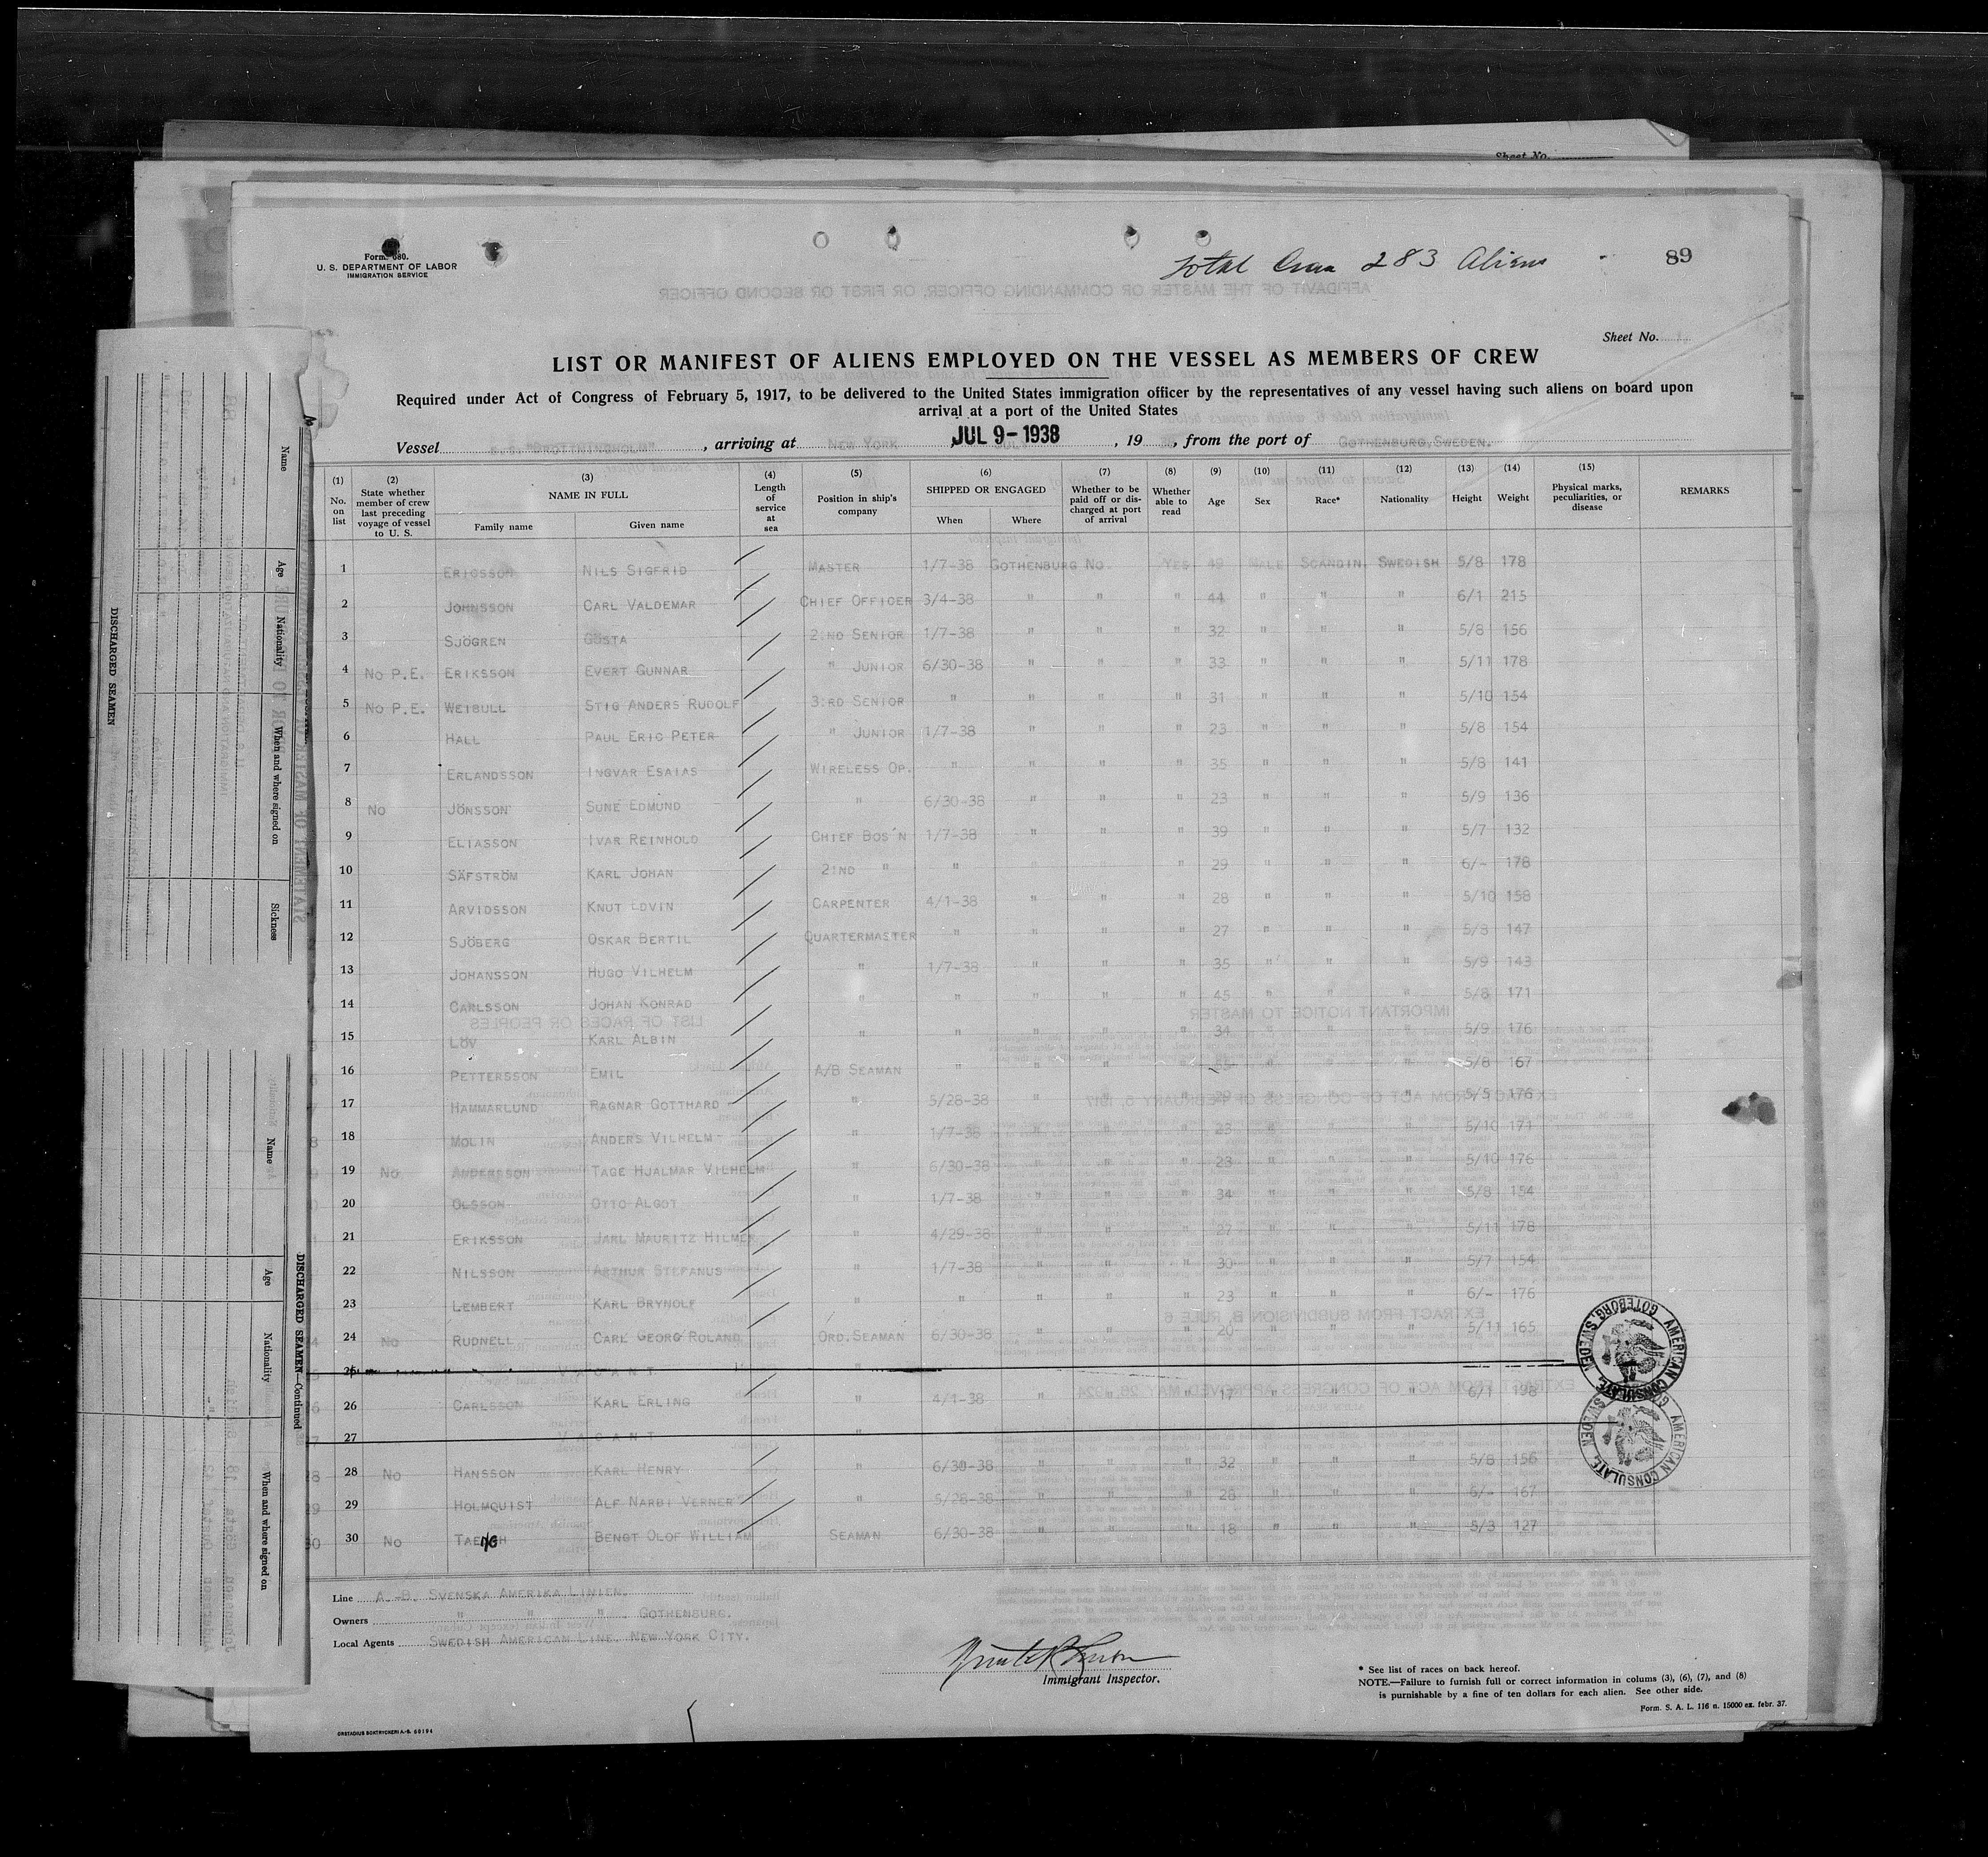 Sheet No.
Form 680.
U. S. DEPARTMENT OF LABOR
IMMIGRATION SERVICE
Total Crew 283 Aliens
89
Sheet No. 1
LIST OR MANIFEST OF ALIENS EMPLOYED ON THE VESSEL AS MEMBERS OF CREW
Required under Act of Congress of February 5, 1917, to be delivered to the United States immigration officer by the representatives of any vessel having such aliens on board upon
arrival at a port of the United States
Vessel S.S. "DROTTNINGHOLM", arriving at NEW YORK JUL 9-1938, 19 , from the port of GOTHENBURG, SWEDEN.
(1) No. on list
(2) State whether member of crew last preceding voyage of vessel to U. S.
(3) NAME IN FULL Family name Given name
(4) Length of service at sea
(5) Position in ship's company
(6) SHIPPED OR ENGAGED When Where
(7) Whether to be paid off or discharged at port of arrival
(8) Whether able to read
(9) Age
(10) Sex
(11) Race*
(12) Nationality
(13) Height
(14) Weight
(15) Physical marks, peculiarities, or disease
REMARKS
1 ERICSSON NILS SIGFRID MASTER 1/7-38 GOTHENBURG NO. YES 49 MALE SCANDIN. SWEDISH 5/8 178
2 JOHNSSON CARL VALDEMAR CHIEF OFFICER 3/4-38 " " " 44 " " " 6/1 215
3 SJÖGREN GÖSTA 2:ND SENIOR 1/7-38 " " " 32 " " " 5/8 156
4 NO P.E. ERIKSSON EVERT GUNNAR " JUNIOR 6/30-38 " " " 33 " " " 5/11 178
5 NO P.E. WEIBULL STIG ANDERS RUDOLF 3:RD SENIOR " " " " 31 " " " 5/10 154
6 HALL PAUL ERIC PETER " JUNIOR 1/7-38 " " " 23 " " " 5/8 154
7 ERLANDSSON INGVAR ESAIAS WIRELESS OP. " " " " 35 " " " 5/8 141
8 NO JÖNSSON SUNE EDMUND " 6/30-38 " " " 23 " " " 5/9 136
9 ELIASSON IVAR REINHOLD CHIEF BOS'N 1/7-38 " " " 39 " " " 5/7 132
10 SÄFSTRÖM KARL JOHAN 2:ND " " " " " 29 " " " 6/- 178
11 ARVIDSSON KNUT EDVIN CARPENTER 4/1-38 " " " 28 " " " 5/10 158
12 SJÖBERG OSKAR BERTIL QUARTERMASTER " " " " 27 " " " 5/8 147
13 JOHANSSON HUGO VILHELM " 1/7-38 " " " 35 " " " 5/9 143
14 CARLSSON JOHAN KONRAD " " " " " 45 " " " 5/8 171
15 LÖV KARL ALBIN " " " " " 34 " " " 5/9 176
16 PETTERSSON EMIL A/B SEAMAN " " " " " " " 5/8 167
17 HAMMARLUND RAGNAR GOTTHARD " 5/28-38 " " " 29 " " " 5/5 176
18 MOLIN ANDERS VILHELM " 1/7-38 " " " 23 " " " 5/10 171
19 NO ANDERSSON TAGE HJALMAR VILHELM " 6/30-38 " " " 23 " " " 5/10 176
20 OLSSON OTTO ALGOT " 1/7-38 " " " 34 " " " 5/8 154
21 ERIKSSON JARL MAURITZ HILMER " 4/29-38 " " " 27 " " " 5/11 178
22 NILSSON ARTHUR STEFANUS " 1/7-38 " " " 30 " " " 5/7 154
23 LEMBERT KARL BRYNOLF " " " " " 23 " " " 6/- 176
24 NO RUDNELL CARL GEORG ROLAND ORD. SEAMAN 6/30-38 " " " 20 " " " 5/11 165
25 VACANT "
26 CARLSSON KARL ERLING " 4/1-38 " " " 17 " " " 6/1 198
27 VACANT "
28 NO HANSSON KARL HENRY " 6/30-38 " " " 32 " " " 5/8 156
29 HOLMQUIST ALF NARBI VERNER " 5/28-38 " " " 28 " " " 6/- 167
30 NO BENGT OLOF WILLIAM SEAMAN 6/30-38 " " " 18 " " " 5/3 127
AMERICAN CONSULATE, GOTEBORG, SWEDEN
AMERICAN CONSULATE, SWEDEN
Line A.-B. SVENSKA AMERIKA LINIEN.
Owners " " " GOTHENBURG.
Local Agents SWEDISH AMERICAN LINE, NEW YORK CITY.
Immigrant Inspector.
* See list of races on back hereof.
NOTE.—Failure to furnish full or correct information in colums (3), (6), (7), and (8)
is punishable by a fine of ten dollars for each alien. See other side.
Form. S. A. L. 116 n. 15000 ex. febr. 37.
DISCHARGED SEAMEN
Name
Age
Nationality
When and where signed on
Sickness
DISCHARGED SEAMEN—Continued
Name
Age
Nationality
When and where signed on